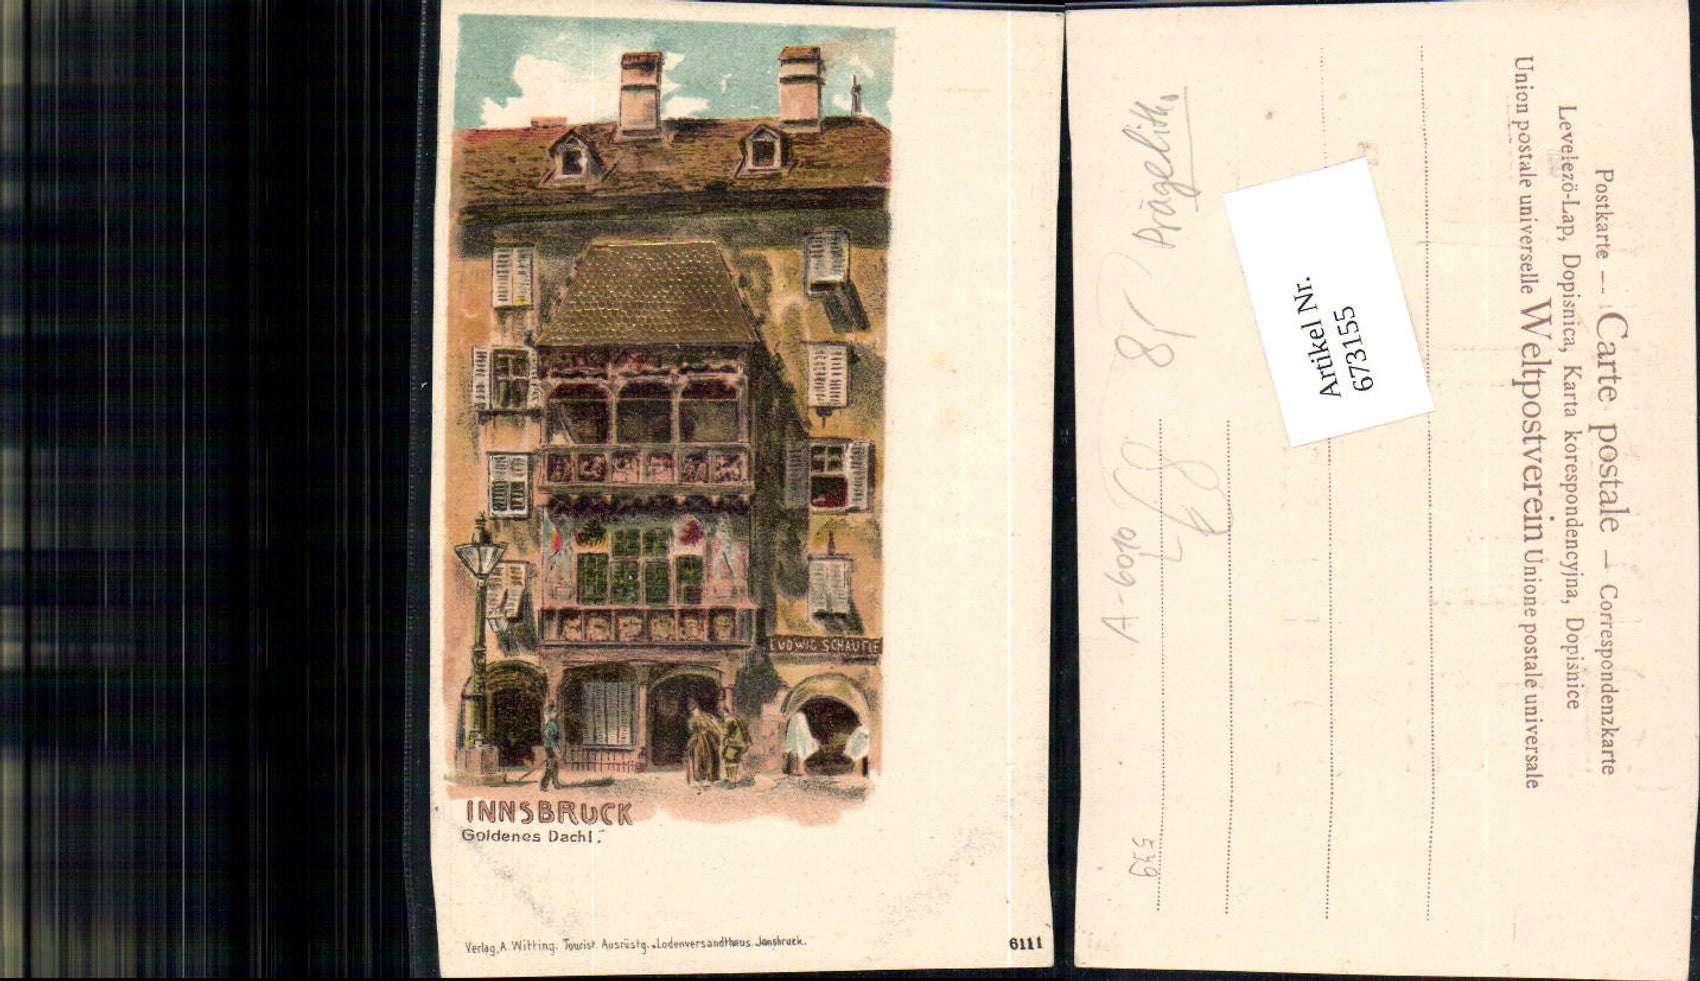 LUDWIG SCHRUTTE
INNSBRUCK
Goldenes Dachl.
Verlag, A. Witting. Tourist. Ausrüstg. Lodenversandthaus Jnnsbruck.
6111
Postkarte — Carte postale — Correspondenzkarte
Levelező-Lap, Dopisnica, Karta korespondencyjna, Dopisnice
Union postale universelle Weltpostverein Unione postale universale
Artikel Nr.
673155
Prägelith.
A-6010
539